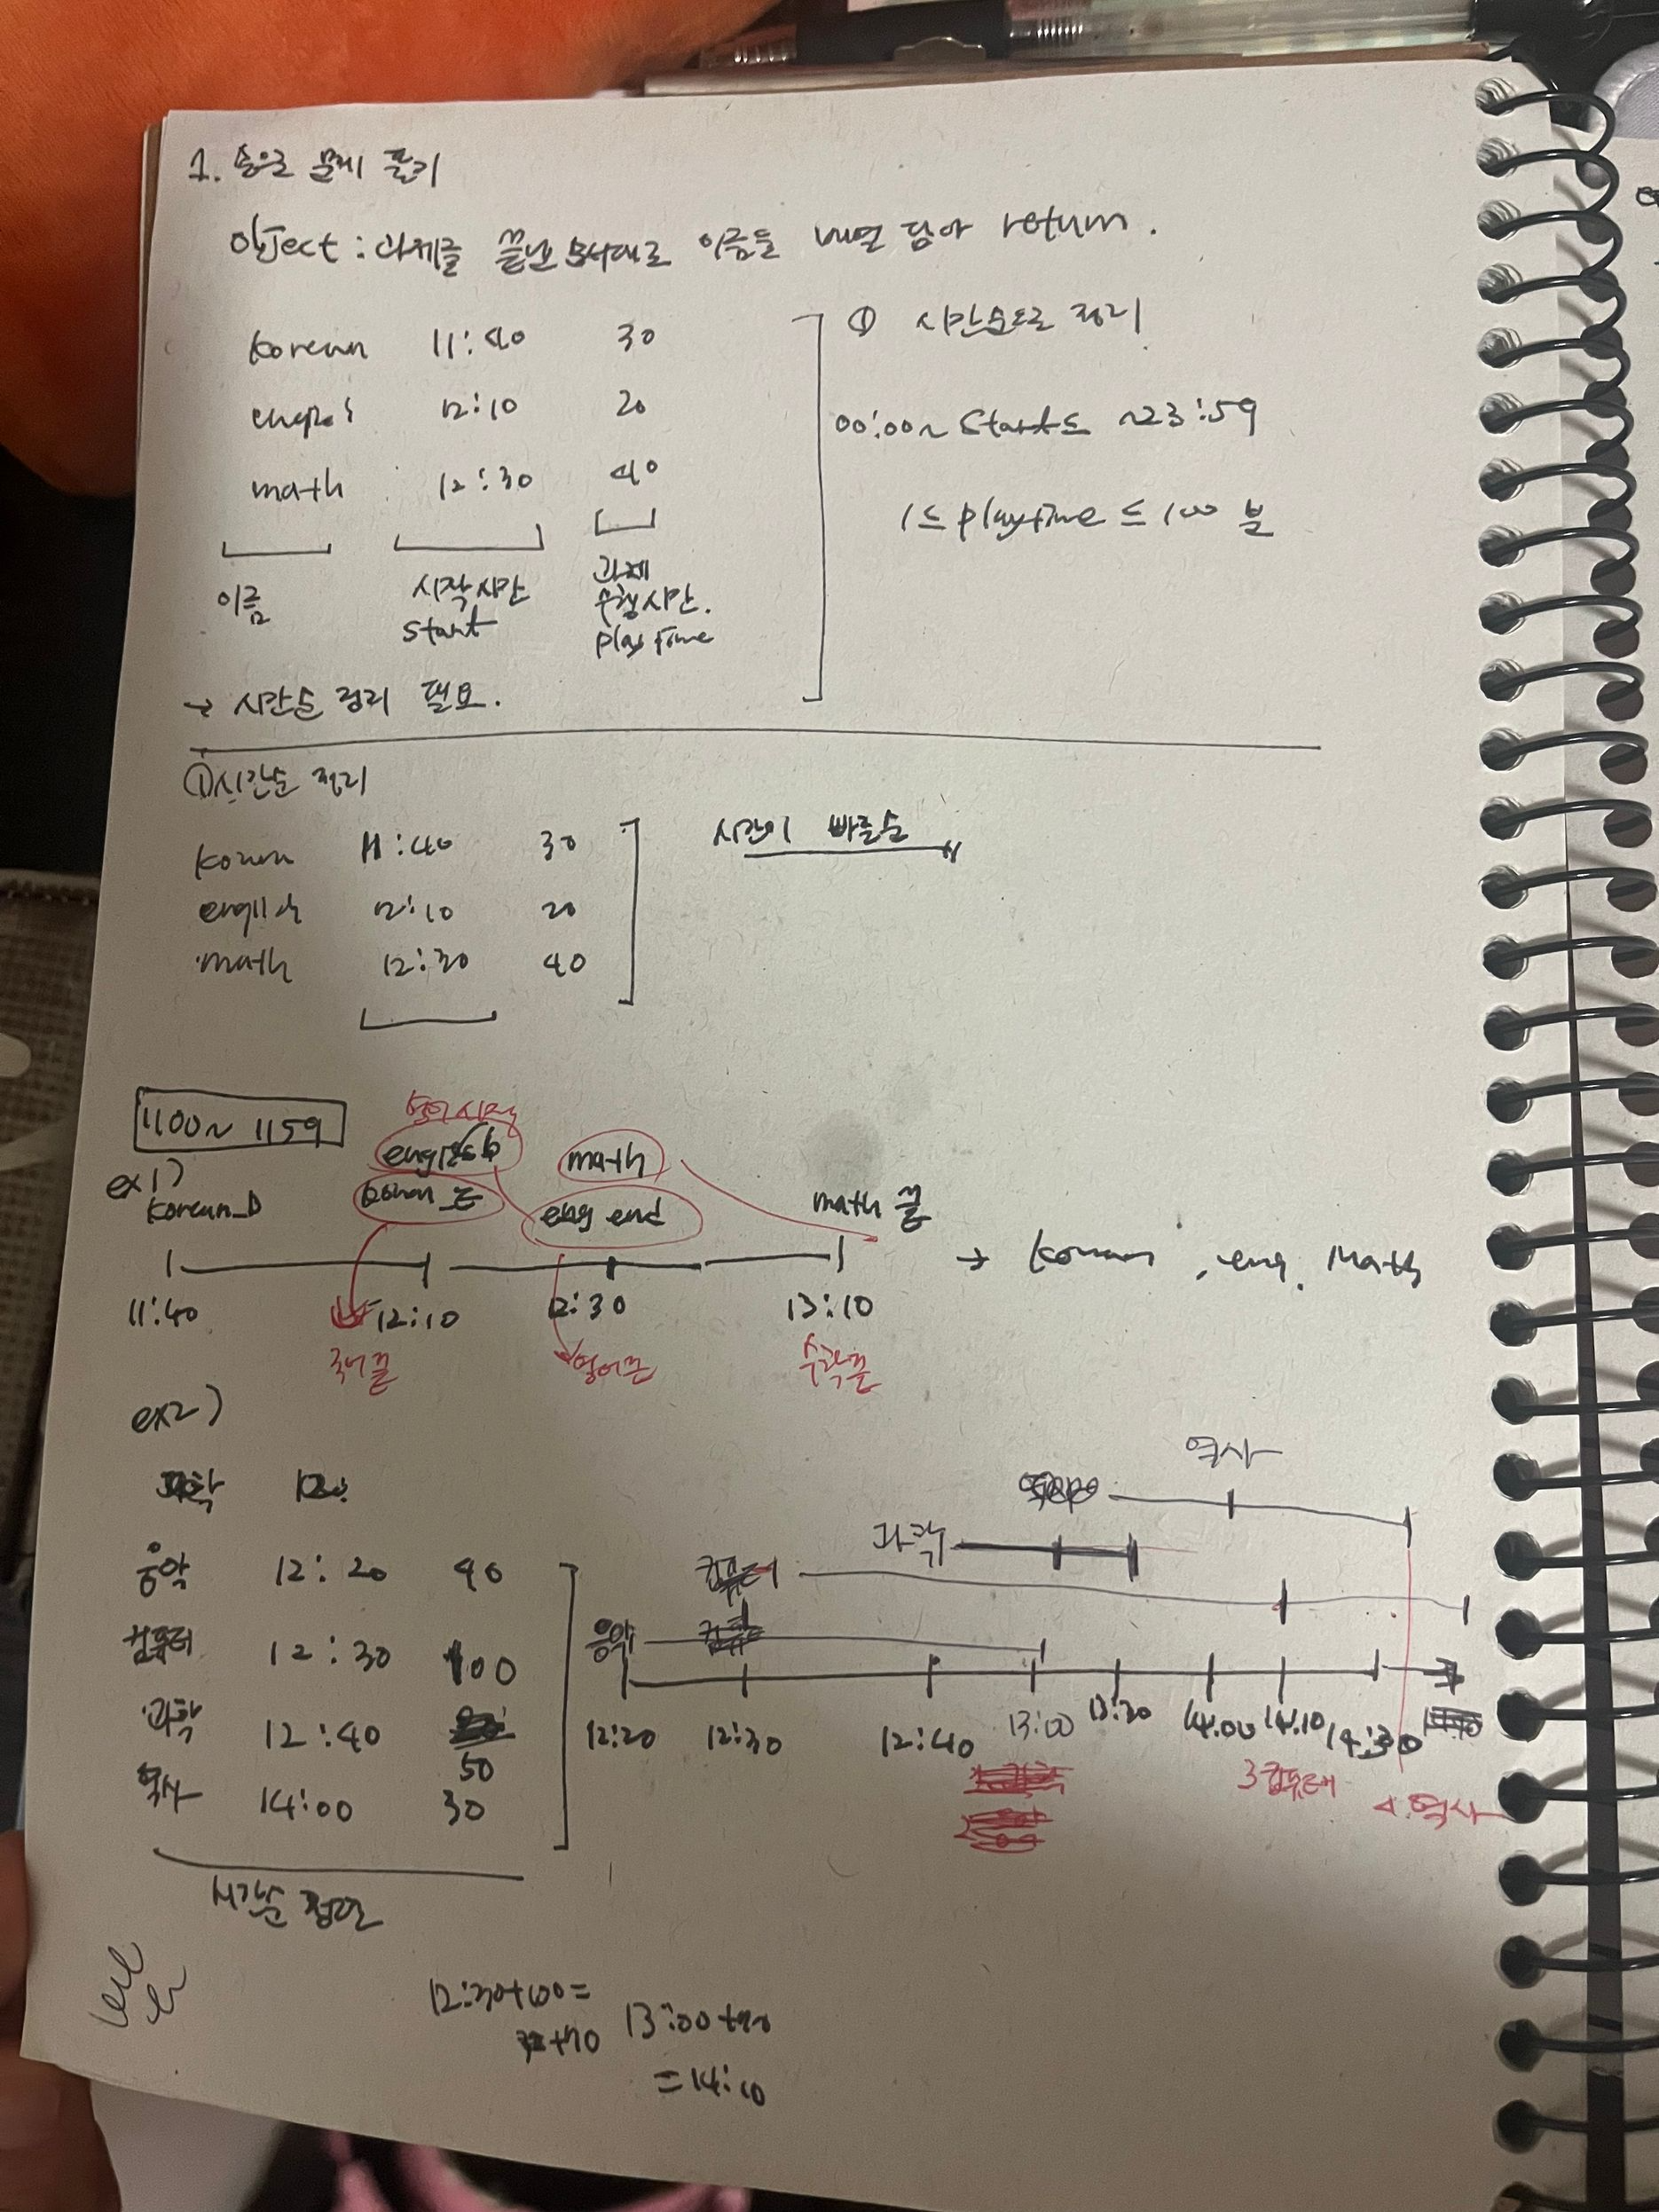 1. 손으로 문제 풀기
Object : 과제를 끝낸 순서대로 이름을 배열 담아 return.
korean 11:40 30
12:10 20
math 12:30 40
이름
시작시간
start
과제
수행시간.
playtime
→ 시간순 정리 필요.
① 시간순으로 정리
00:00~ start ≤ ~23:59
1 ≤ playtime ≤ 100 분
① 시간순 정리
korean 11:40 30
english 12:10 20
math 12:30 40
시간이 빠른순
1100~ 1159
ex1)
영어시작
english math
korean 끝 eng end math 끝
11:40 12:10 12:30 13:10
→ korean, eng, Math
국어끝 영어끝 수학끝
ex2)
음악 12:20 40
컴퓨터 12:30 100
과학 12:40 50
역사 14:00 30
시간순 정렬
역사
과학
컴퓨터
음악
12:20 12:30 12:40 13:00 13:30 14:00 14:10 14:30
3 컴퓨터
4 역사
12:30+100=
+70 13:00+70
= 14:10